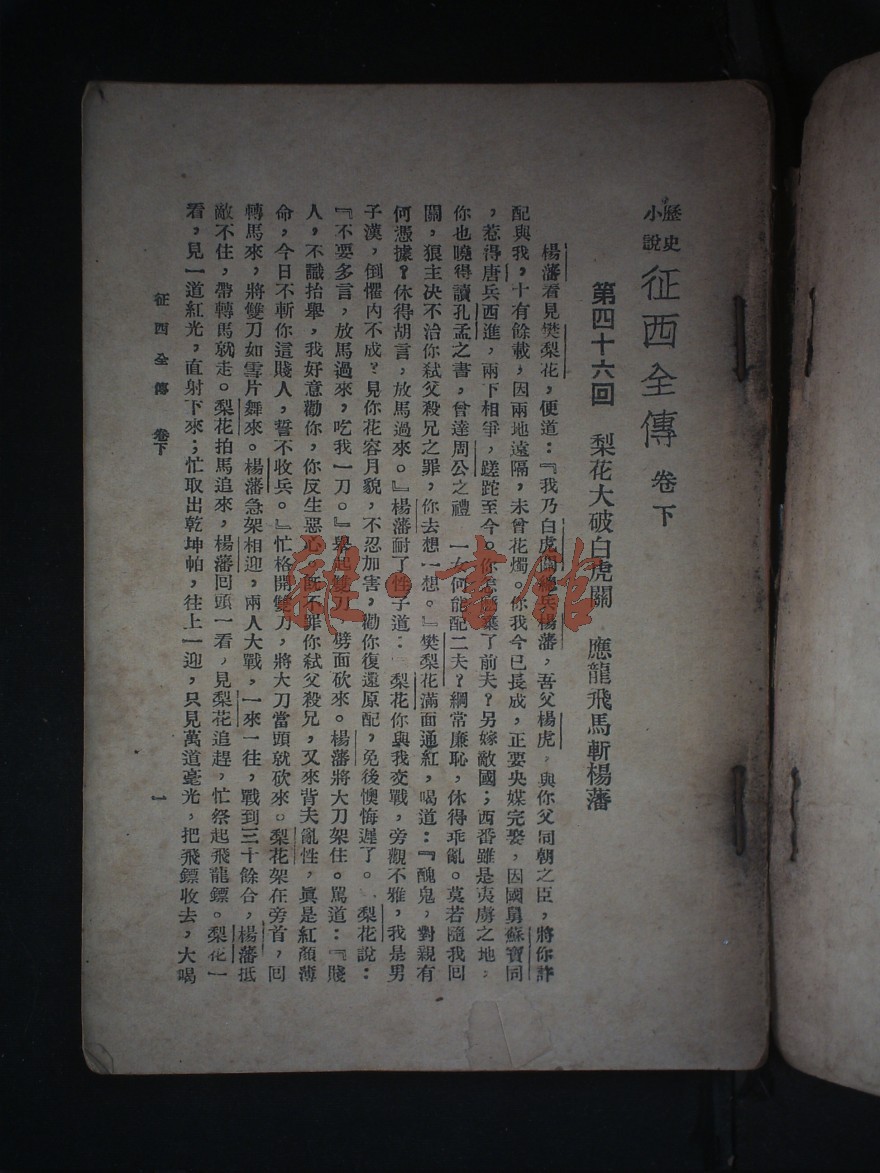 歷史小說 征西全傳 卷下
第四十六回 梨花大破白虎關 應龍飛馬斬楊藩
楊藩看見樊梨花，便道：『我乃白虎關總兵楊藩，吾父楊虎，與你父同朝之臣，將你許
配與我，十有餘載，因兩地遠隔，未曾花燭。你我今已長成，正要央媒完娶，因國舅蘇寶同
，惹得唐兵西進，兩下相爭，蹉跎至今。你怎麼棄了前夫？另嫁敵國；西番雖是夷虜之地，
你也曉得讀孔孟之書，曾達周公之禮 一女何能配二夫？綱常廉恥，休得乖亂。莫若隨我回
關，狼主决不治你弒父殺兄之罪，你去想一想。』樊梨花滿面通紅，喝道：『醜鬼，對親有
何憑據？休得胡言，放馬過來。』楊藩耐了性子道：『梨花你與我交戰，旁觀不雅，我是男
子漢，倒懼內不成？見你花容月貌，不忍加害，勸你復還原配，免後懊悔遲了。』梨花說：
『不要多言，放馬過來，吃我一刀。』舉起雙刀 劈面砍來。楊藩將大刀架住。罵道：『賤
人，不識抬舉，我好意勸你，你反生惡心，既不罪你弒父殺兄，又來背夫亂性，眞是紅顏薄
命，今日不斬你這賤人，誓不收兵。』忙格開雙刀，將大刀當頭就砍來。梨花架在旁首，回
轉馬來，將雙刀如雪片舞來。楊藩急架相迎，兩人大戰，一來一往，戰到三十餘合，楊藩抵
敵不住，帶轉馬就走。梨花拍馬追來，楊藩回頭一看，見梨花追趕，忙祭起飛龍鏢。梨花一
看，見一道紅光，直射下來；忙取出乾坤帕，往上一迎，只見萬道毫光，把飛鏢收去，大喝
征西全傳 卷下 一
雜·書館